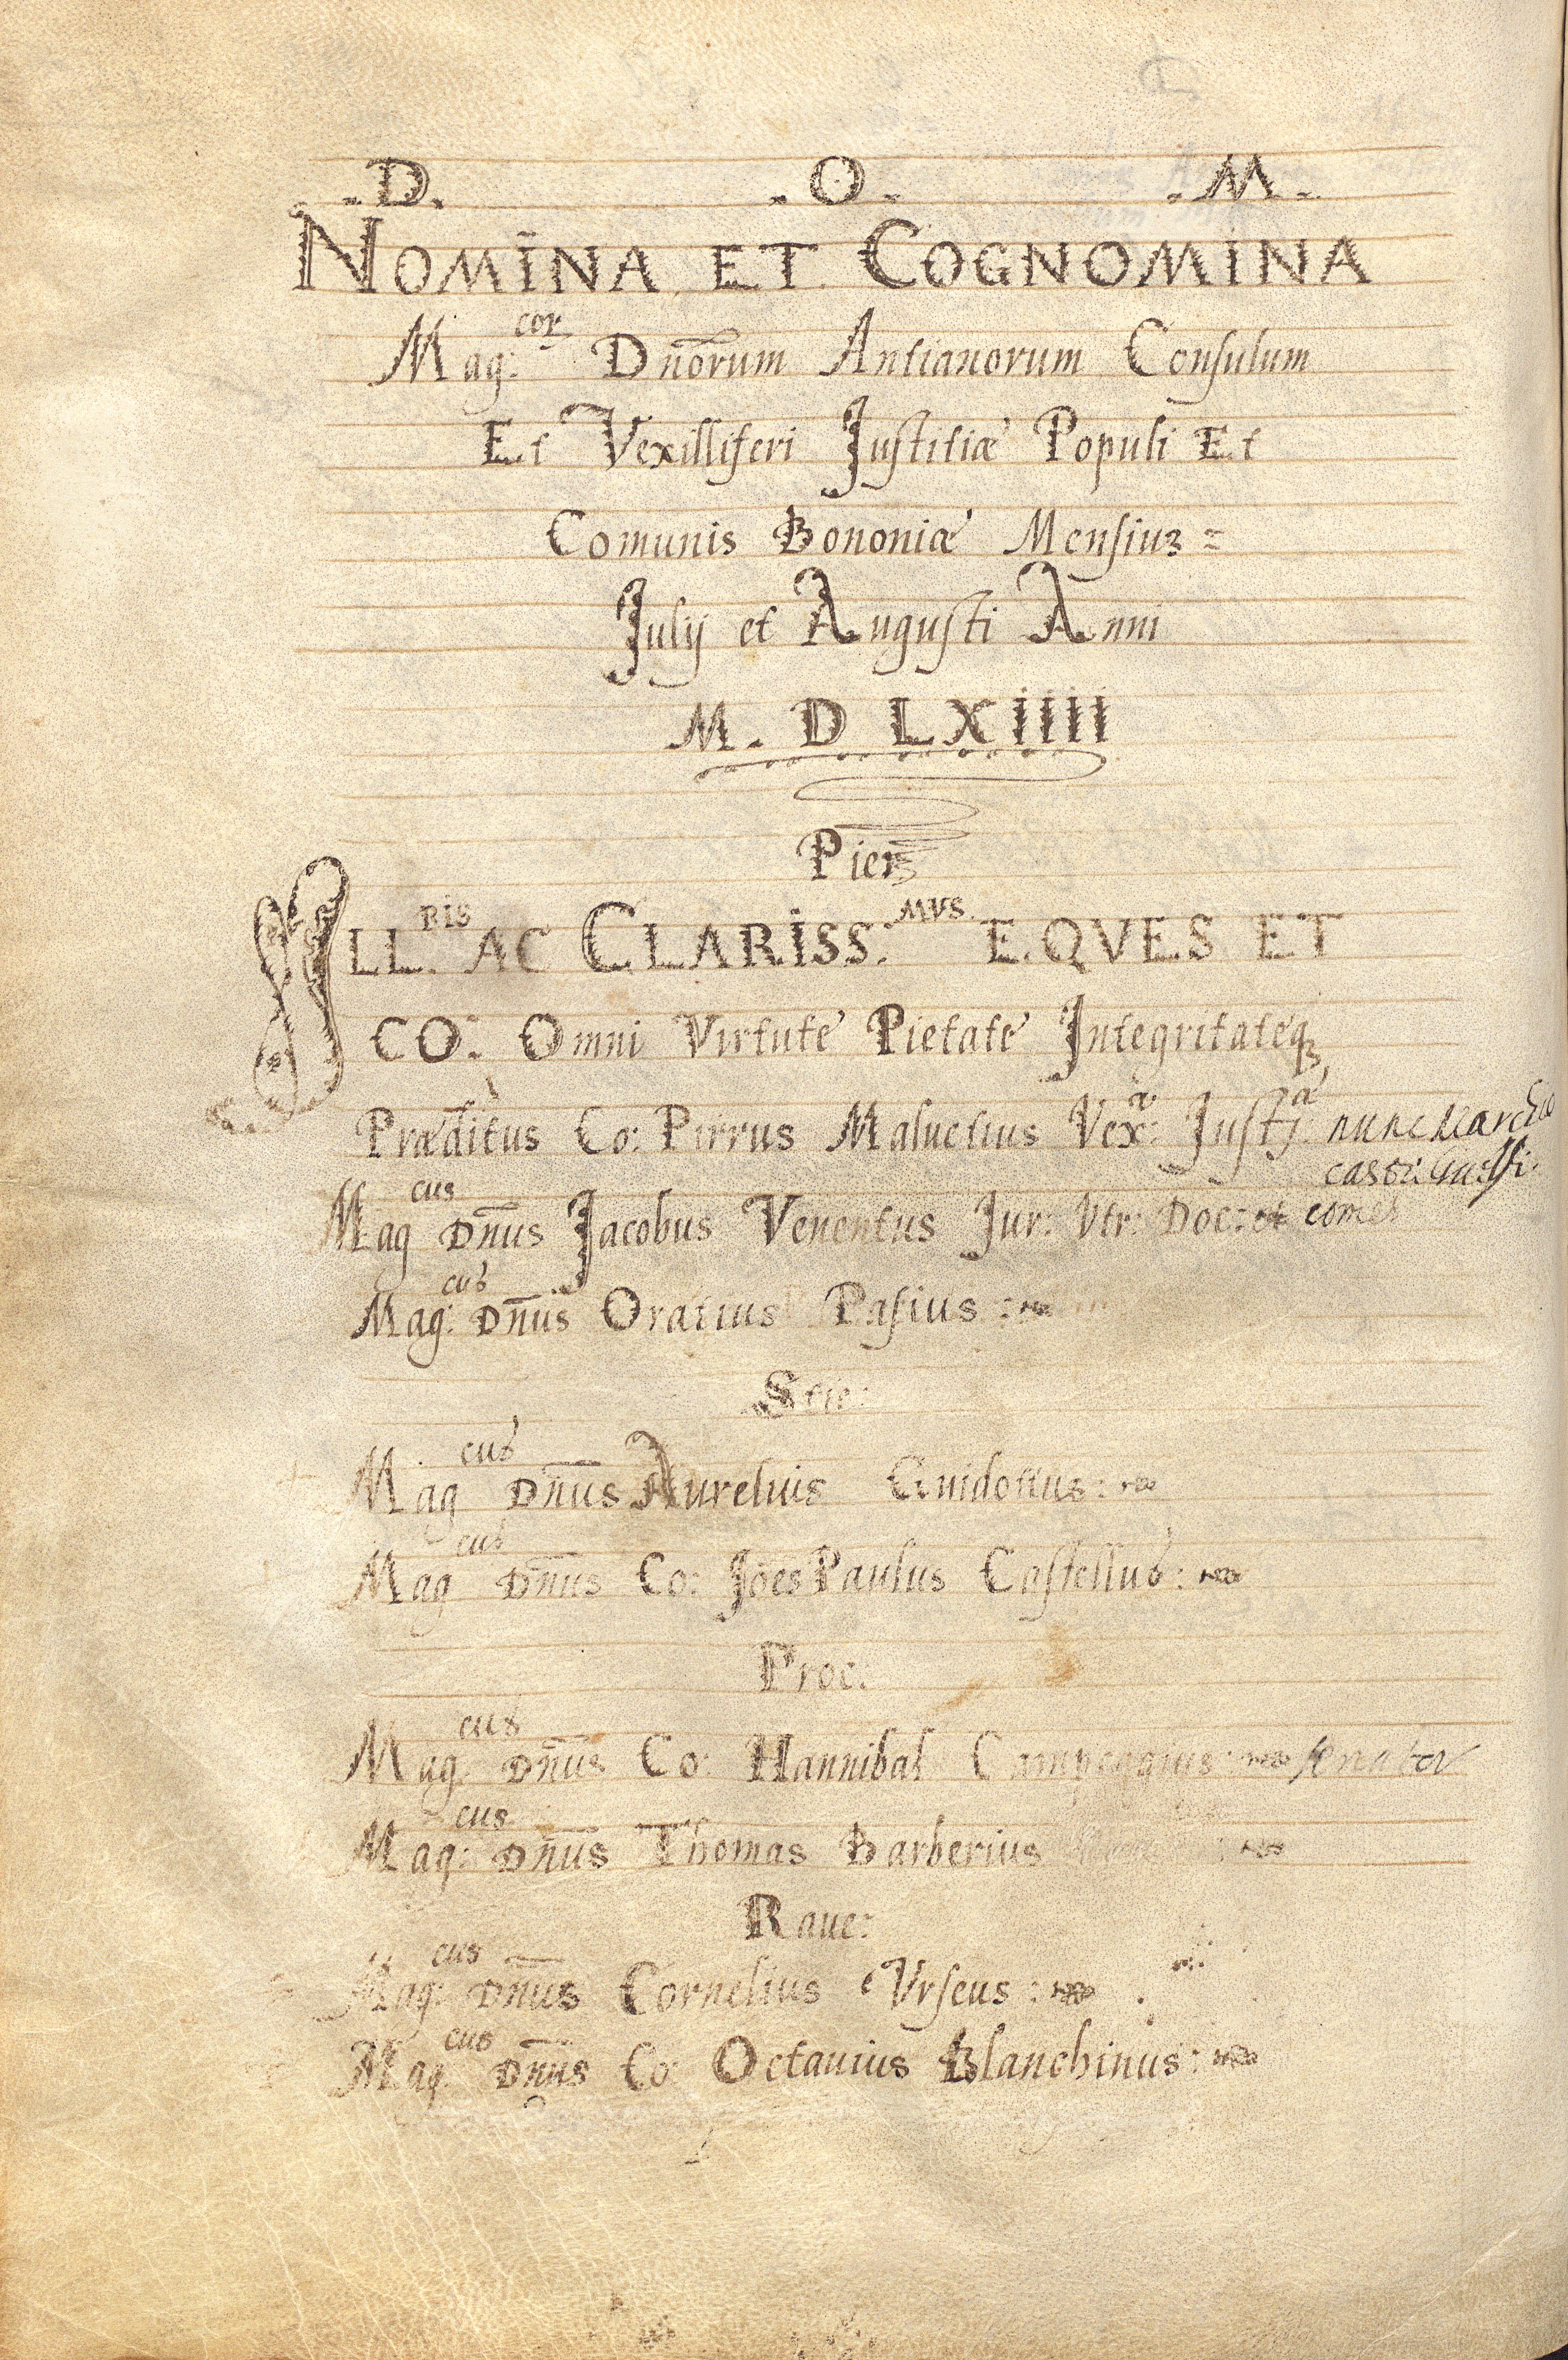 .D. .O. .M.
NOMINA ET COGNOMINA
Mag:cor. Dnōrum Antianorum Consulum
Et Vexilliferi Justitiæ Populi Et
Comunis Bononiæ Mensiuꝫ =
Julij et Augusti Anni
M. D LXIIII
Pier
ILL.RIS AC CLARISS:MVS. EQVES ET
CO: Omni Virtute Pietate Integritateqꝫ
Præditus Co: Pirrus Maluetius Vex:a: Justj:æ nunc Marchio
castri
Mag cus Dn̄us Jacobus Venentus Jur: Vtr: Doc: et comes
Mag:cus Dn̄us Oratius Pasius :
Stie:
Mag cus Dn̄us Aurelius Guidottus :
Mag cus Dn̄us Co: Jōes Paulus Castellus :
Proc:
Mag.cus Dn̄us Co: Hannibal Campeggius : senator
Mag:cus Dn̄us Thomas Barberius
Raue:
Mag:cus Dn̄us Cornelius Vrseus :
Mag.cus Dn̄us Co: Octauius Blanchinus :